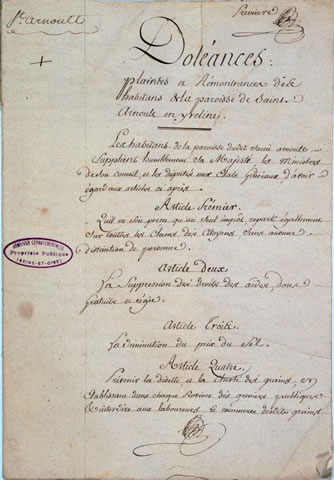 St. Arnoult
Premiere
Doléances,
plaintes et Rémontrances des
habitans de la paroisse de Saint
Arnoult en yveline.
Les habitans de la paroisse dudit saint arnoult
Supplient humblement Sa Majesté les Ministres
de son conseil, et les députés aux Etats Généraux d'avoir
égard aux articles ci après.
Article Premier
Qu'il ne soit perçu qu'un seul impôt reparti également
sur toutes les Classes des Citoyens Sans aucune
distinction de personne.
ARCHIVES DEPARTEMENTALES
Propriété Publique
(SEINE-ET-OISE)
Article Deux
La Suppression des droits des aides, dons
Gratuits et régie.
Article Troisе.
La diminution du prix du Sel.
Article Quatre
Prévenir la disette et la cherté des grains, en
établissant dans chaque Province des greniers publiques
& interdire aux laboureurs le commerce desdits grains